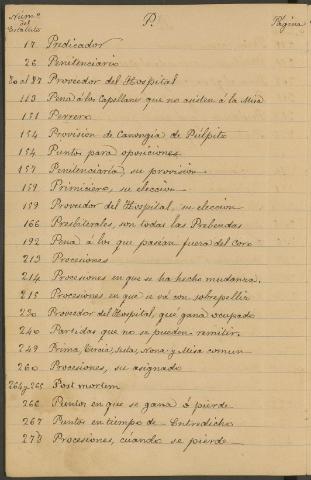 Num.º del Estatuto P. Página
17 Predicador
26 Penitenciario
80 al 87 Proveedor del Hospital
113 Pena á los Capellanes que no asisten á la Misa
151 Perrero
154 Provisión de Canongia de Púlpito
154 Puntos para oposiciones
157 Penitenciaría, su provisión
159 Primiciero, su eleccion
159 Proveedor del Hospital, su eleccion
166 Presbiterales, son todas las Prebendas
192 Pena á los que pasean fuera del Coro
213 Procesiones
214 Procesiones en que se ha hecho mudanza.
215 Procesiones en que se va con sobrepelliz
230 Proveedor del Hospital, que gana ocupado
240 Partidas que no se pueden remitir.
249 Prima, Tercia, Sexta, Nona y Misa comun
260 Procesiones, su asignado
264 y 265 Post mortem
266 Puntos en que se gana ó pierde
267 Puntos en tiempo de Entredicho
278 Procesiones, cuándo se pierde